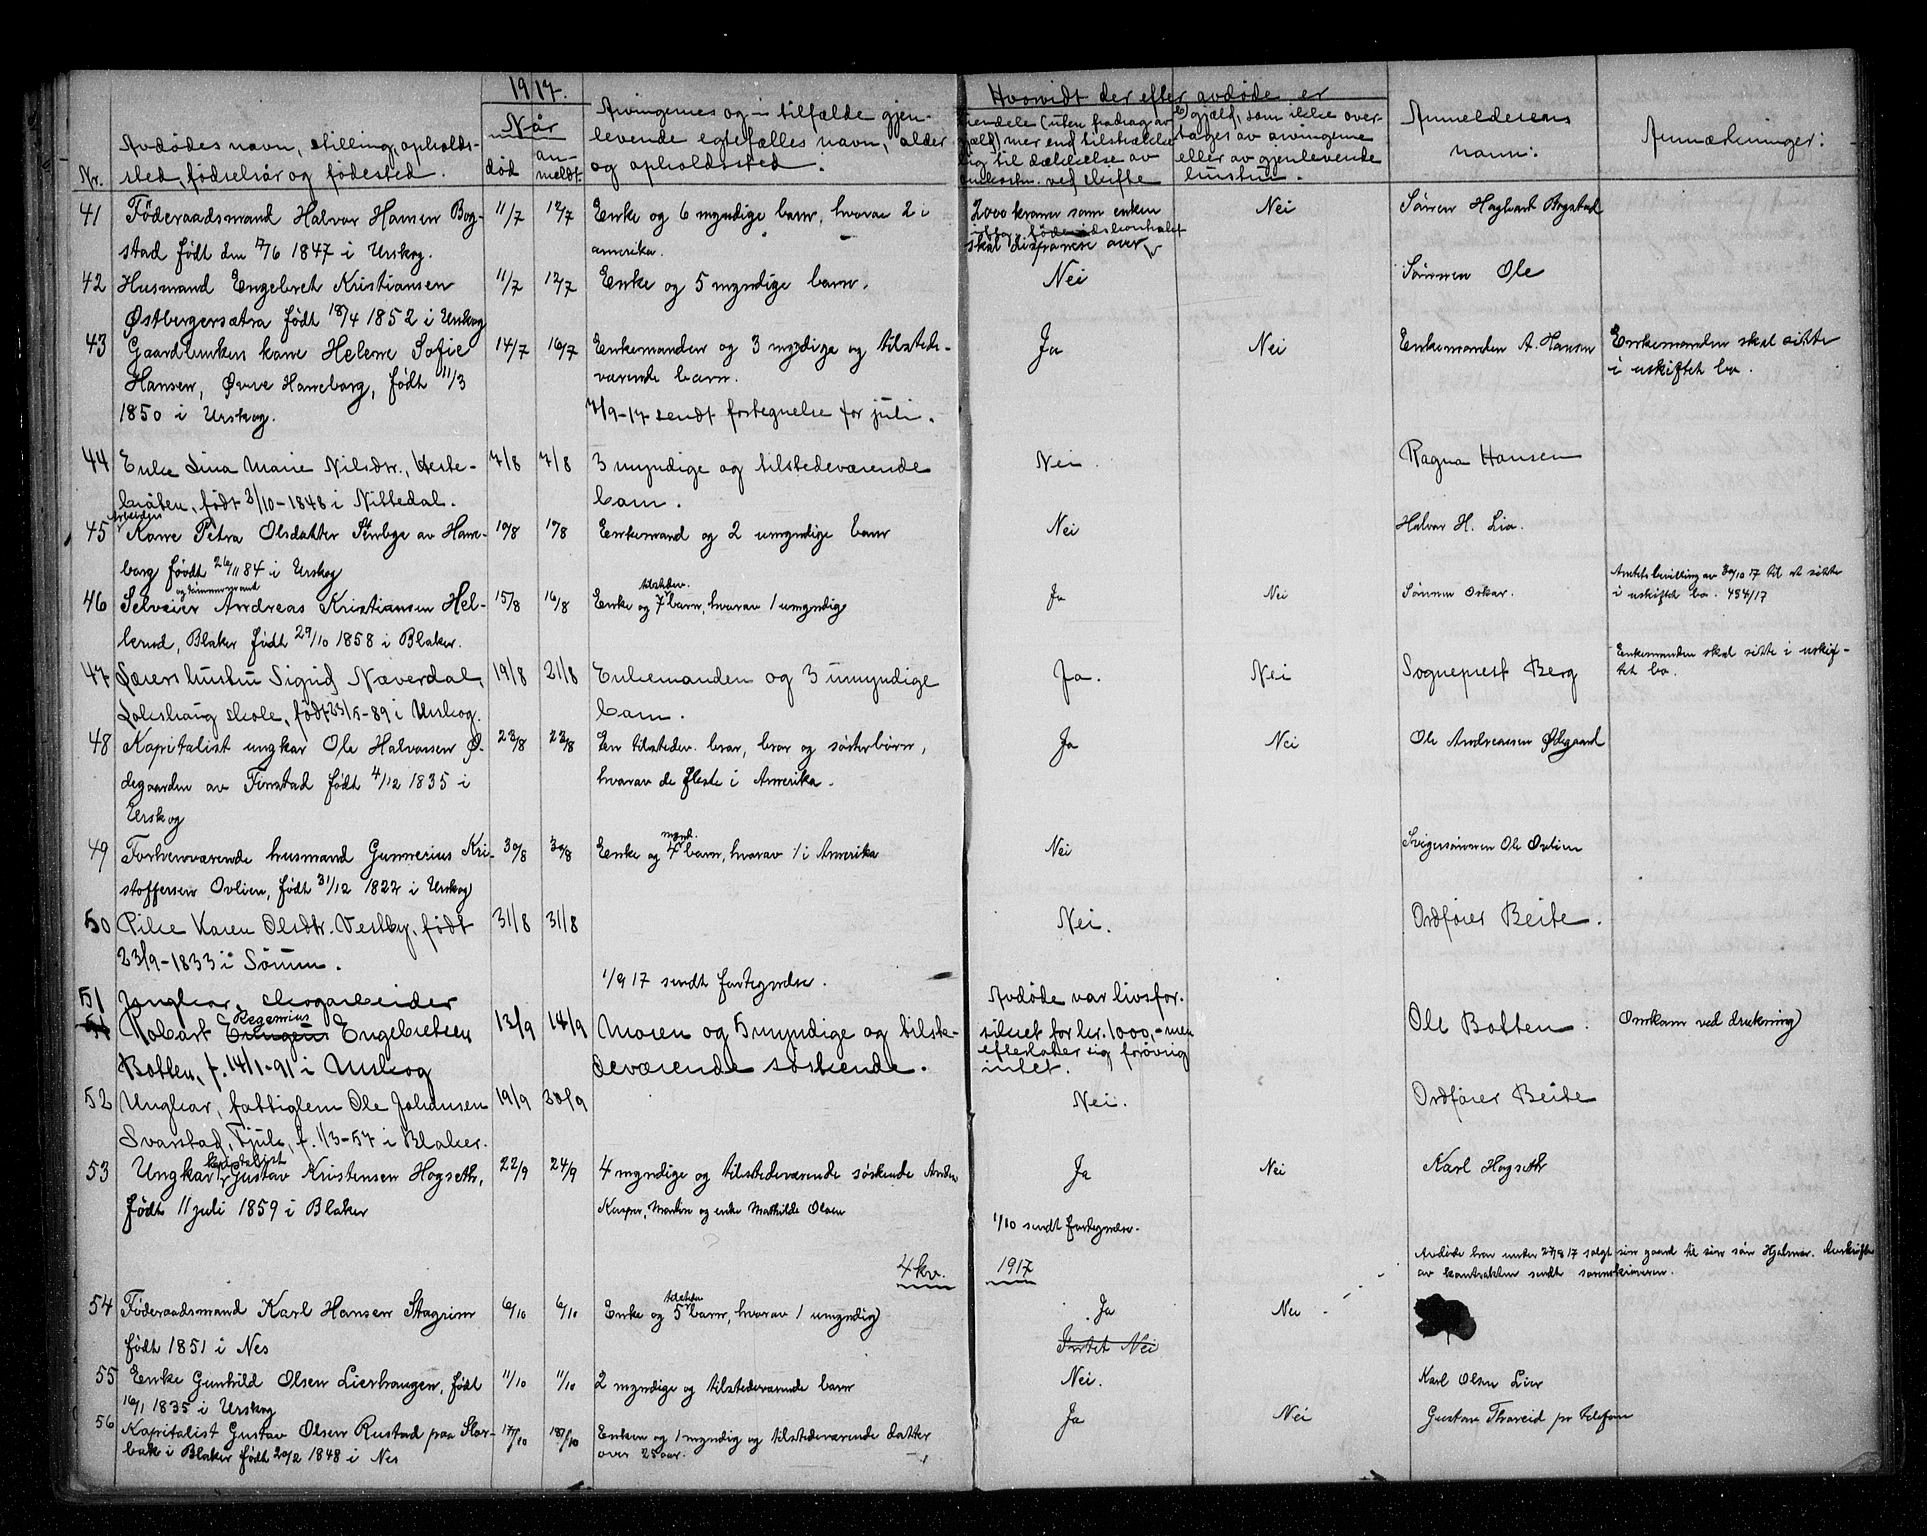 1917.
Når
Nr.
Avdødes navn, stilling, opholds-
sted, fødselsår og fødested.
død
an-
meldt.
Arvingernes og i tilfælde gjen-
levende egtefælles navn, alder
og opholdssted:
Hvorvidt der efter avdøde er
eiendele (uten fradrag av
gjæld) mer end tilstrække-
lig til dækkelse av
ved skifte
b) gjæld, som ikke over-
tages av arvingerne
eller av gjenlevende
hustru.
Anmelderens
navn:
Anmærkninger:
41 Föderaadsmand Halvor Hansen Bog- 11/7 12/7 Enke og 6 myndige barn, hvorav 2 i 2000 kroner som enken Nei Sønnen Hagbart Bogstad
stad født den 17/6 1847 i Urskog. amerika. skal disponere over
42 Husmand Engebret Kristiansen 11/7 12/7 Enke og 5 myndige barn. Nei Sønnen Ole
Østbergersætra født 18/4 1852 i Urskog
43 Gaardbruker kone Helene Sofie 14/7 16/7 Enkemanden og 3 myndige og tilstede- Ja Nei Enkemanden A. Hansen Enkemanden skal sitte
Hansen, Øvre Haneborg, født 11/3 værende barn. i uskiftet bo.
1850 i Urskog. 7/9-17 sendt fortegnelse for juli.
44 Enke Lina Marie Nilsdtr., Heste- 7/8 7/8 3 myndige og tilstedeværende Nei Ragna Hansen
bråten, født 3/10-1848 i Nittedal. barn.
Arbeider
45 Kone Petra Olsdatter Stenbye av Hane- 10/8 10/8 Enkemand og 2 umyndige barn Nei Halvor H. Lia.
borg føodt 26/11 84 i Urskog
og tømmermand
46 Selveier Andreas Kristiansen Hel- 15/8 16/8 Enke og 7 tilstedev. barn, hvorav 1 umyndig Ja Nei Sønnen Oskar. Amtsbevilling av 30/10 17 til at sitte
lerud, Blaker født 29/10 1858 i Blaker. i uskiftet bo. 454/17
47 Lærers hustru Sigrid Næverdal, 19/8 21/8 Enkemanden og 3 umyndige Ja. Nei Sogneprest Berg Enkemanden skal sitte i uskif-
Lokshaug skole, født 23/5-89 i Urskog. barn. tet bo.
48 Kapitalist ungkar Ole Halvorsen Ø- 23/8 23/8 En tilstedev. bror, bror og søsterbørn, Ja Nei Ole Andreassen Ødegaard
degaarden av Finstad født 4/12 1835 i hvorav de fleste i Amerika.
Urskog
49 Forhenværende husmand Gunnerius Kri- 30/8 30/8 Enke og 7 mynd. barn, hvorav 1 i Amerika Nei Svigersønnen Ole Ovlien
stoffersen Ovlien, født 31/12 1827 i Urskog
50 Pike Karen Olsdtr. Vestby, født 31/8 31/8 Nei. Ordfører Beite.
23/9-1833 i Sørum.
1/9 17 sendt fortegnelse.
51 Ungkar, skogarbeider Avdøde var livsfor-
Robart Regenius Engebretsen 13/9 14/9 Moren og 5 myndige og tilste- sikret for kr. 1000,- men Ole Botten. Omkom ved drukning
Botten, f. 14/1-91 i Urskog deværende søskende. efterlater sig forøvrig
intet.
52 Ungkar, fattiglem Ole Johansen 19/9 20/9 Nei. Ordfører Beite
Svarstad, Fjuk, f. 1/3-57 i Blaker.
kapitalist
53 Ungkar Gustav Kristensen Hogseth, 22/9 24/9 4 myndige og tilstedeværende søskende Anders Ja Nei Karl Hogseth
født 11 juli 1859 i Blaker Kasper, Martin og enke Mathilde Olsen
1/10 sendt fortegnelse.
4 kv. 1917
Avdøde har under 27/8 17 solgt sin gaard til sin søn Hjalmar. Avskrift
av kontrakten sendt sorenskriveren.
54 Føderaadsmand Karl Hansen Stagrim 6/10 6/10 Enke og 5 barn, hvorav 1 umyndig Ja Nei
født 1851 i Nes Intet Nei
55 Enke Gunhild Olsen Lierhaugen, født 11/10 11/10 2 myndige og tilstedeværende barn Nei. Karl Olsen Lier
16/1 1835 i Urskog
56 Kapitalist Gustav Olsen Rustad paa Stor- 17/10 18/10 Enken og 1 myndig og tilstedeværende datter Ja Nei Gustav Thoreid pr telefon
bak i Blaker født 20/2 1848 i Nes over 25 aar.